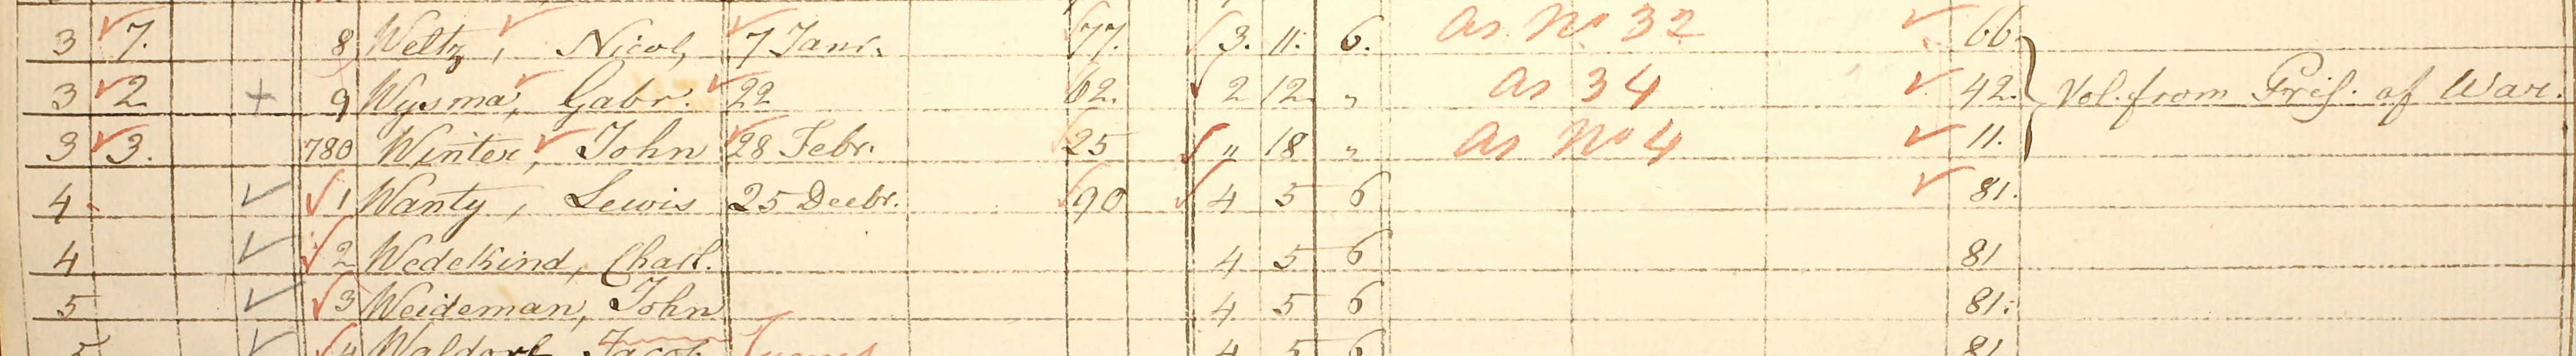 3 7. 8 Weltz, Nicol, 7 Janr. 77. 3. 11. 6. as No 32 66.
3 2 + 9 Wysma, Gabr. 22 62. 2 12 " as 34 42. Vol. from Pris. of War.
3 3. 780 Winter, John 28 Febr. 25 " 18 " as No 4 11.
4 1 Wanty, Lewis 25 Decbr. 90 4 5 6 81.
4 2 Wedekind, Charl. 4 5 6 81
5 3 Weideman, John 4 5 6 81.
5 4 Waldorf Jacob 4 5 6 81